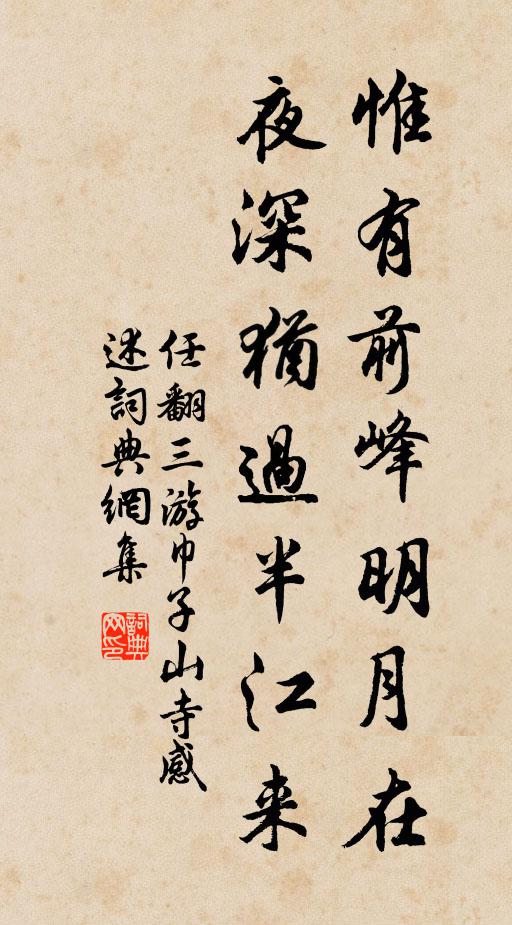 惟有前峰明月在
夜深猶過半江来
任翻三游巾子山寺感
述詞典網集
詞典网印